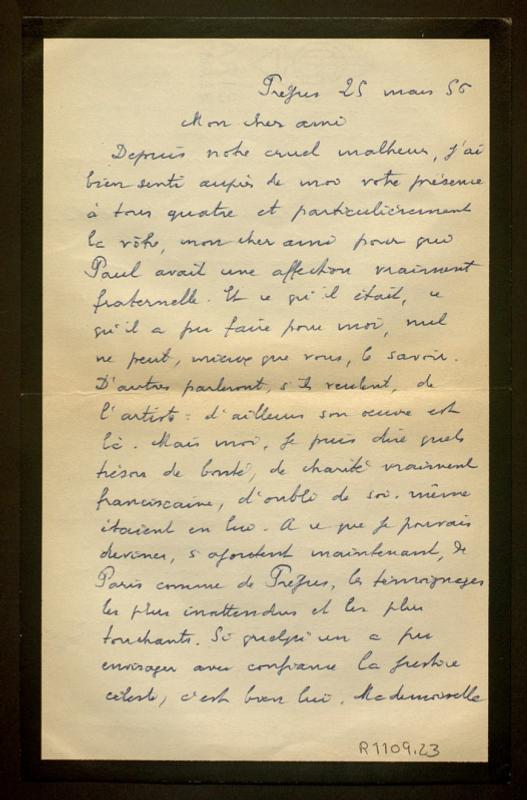 Préfous 25 mars 56
Mon cher ami
Depuis notre cruel malheur, j'ai
bien senti auprès de moi votre présence
à tous quatre et particulièrement
la vôtre, mon cher ami pour qui
Paul avait une affection vraiment
fraternelle. Et ce qu'il était, ce
qu'il a pu faire pour moi, nul
ne peut, mieux que vous, le savoir.
D'autres parleront, s'ils veulent, de
l'artiste : d'ailleurs son œuvre est
là. Mais moi, je puis dire quels
trésors de bonté, de charité vraiment
franciscaine, d'oubli de soi-même
étaient en lui. A ce que je pouvais
deviner, s'ajoutent maintenant, de
Paris comme de Préfous, les témoignages
les plus inattendus et les plus
touchants. Si quelqu'un a pu
envisager avec confiance la justice
céleste, c'est bien lui. Mademoiselle
R1109.23